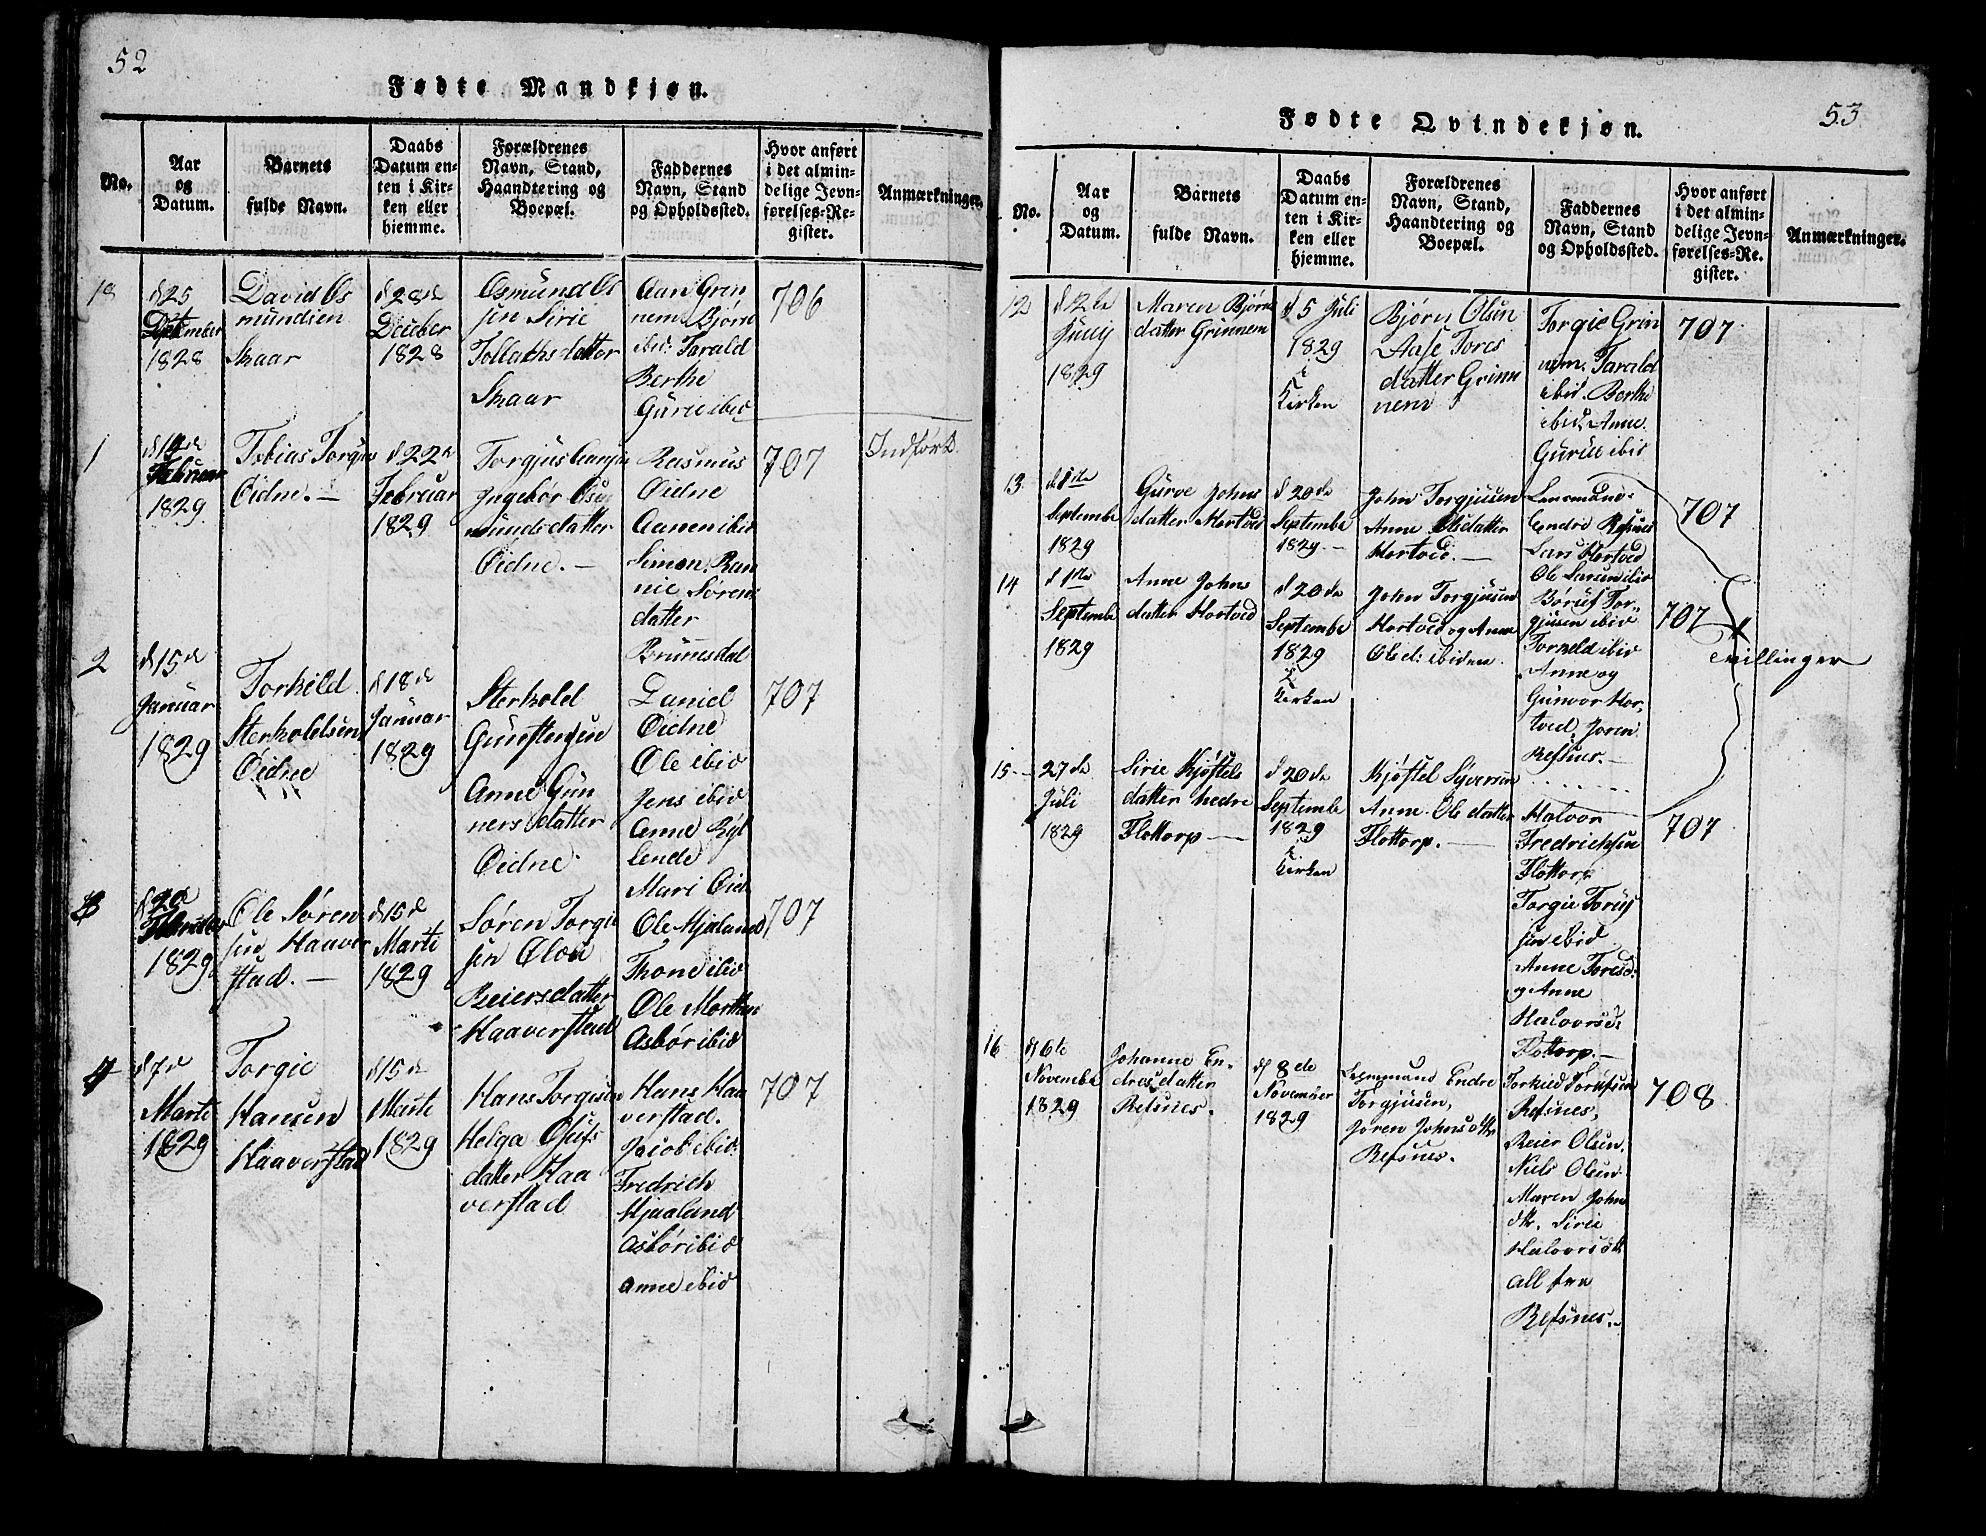 52
Fødte Mandkjøn.
No.
Aar
og
Datum.
Barnets
fulde Navn.
Daabs
Datum en-
ten i Kir-
ken eller
hjemme.
Forældrenes
Navn, Stand,
Haandtering og
Boepæl.
Faddernes
Navn, Stand
og Opholdssted.
Hvor anført
i det almin-
delige Jevn-
førelses-Re-
gister.
Anmærkninger.
18
d 25
1828
David Os
mundsen
Skaar
d 28de
December
1828
Osmund Os
sen Sirie
Tollachsdatter
Skaar
Aan Grin
nem. Bjørn
ibid: Tarald
Berthe
Gurie ibid
706
1
Februar
1829
Tobias Torgius
Øidne. —
d 22de
Februar
1829
Torgjus
Ingebor Osm
mundsdatter
Øidne. —
Rasmus
Øidne
Aanen ibid
Simon. Ran
nie Sørens
datter
Brunesdal
707
Indført
2
d 15de
Januar
1829
Torkild
Sterkoldsen
Øidne
d 18de
Januar
1829
Sterkold
Gunstensen
Anne Gün
nersdatter
Øidne
Daniel
Øidne
Ole ibid
Jens ibid
Anne Røl
lende
Mari Øid
707
3
1829
Ole Søren
sen Haaver
stad. —
d 15de
Marti
1829
Søren Torgie
sen Oloü
Reiersdatter
Haaverstad
Ole Hjaland
Thone ibid
Ole Morthen
Asbør ibid
707
4
d 7de
Marti
1829
Torgie
Hansen
Haaverstad
d 15de
Marti
1829
Hans Torgiesen
Helga
datter Haa
verstad
Hans Haa
verstad.
Jacob ibid:
Fredrich
Hjaaland
Asbør ibid
Anne ibid
707
53
Fødte Qvindekjøn.
No.
Aar
og
Datum.
Barnets
fulde Navn.
Daabs
Datum en-
ten i Kir-
ken eller
hjemme.
Forældrenes
Navn, Stand,
Haandtering og
Boepæl.
Faddernes
Navn, Stand
og Opholdssted.
Hvor anført
i det almin-
delige Jevn-
førelses-Re-
gister.
Anmærkninger.
12
d 12te
Junij
1829
Maren Bjørns
datter Grinnem
d 5 Juli
1829
i
Kirken
Bjørn Olsen
Aase Tores
datter Grinn
nem
Torgie Grin
nem. Tarald
ibid. Berthe
ibid. Anne.
Gurie ibid
707
13
d 1ste
Septembe
1829
Gurve Johns
datter Hortved
d 20de
Septembe
1829. —
John Torgjusen
Anne Olsdatter
Hortved. —
Lensmand
Endre Refsnes
Lars Hortved
Ole Larsen ibid
707
14
d 1ste
Septembe
1829
Anne Johns
datter Hortved
d 20de
Septembe
1829
i
Kirken
John Torgjusen
Hortved og Anne
Ols d: ibidem.
Børüf Tor-
gjusen ibid
Torneld ibid
Anne og
Gunvor Hor,
tved, Joren
Refsnes. —
707
Tvillinger
15
27de
Juli
1829
Sirie Kjøstels
datter nedre
Flottorp —
d 20de
Septembe
1829
i
Kirken
Kjøstel Syversen
Anne Ols datter
Flottorp. —
Halvor
Fredrichsen
Flottorp
Torgie Toruf
sen ibid
Anne Toresd.
og Anne
Halvorsd:
Flottorp. —
707
16
d 6te
Novembe
1829
Johanne En-
dresdatter
Refsnes.
d 8de
November
1829
Lensmand Endre
Torgjusen,
Joren Johnsdttr
Refsnes.
Torkild Torufsen
Refsnes,
Reier Olsen.
Niels Olsen
Maren Johns
dtr. Sirie
Halvorsdtt
all fra
Refsnes.
708